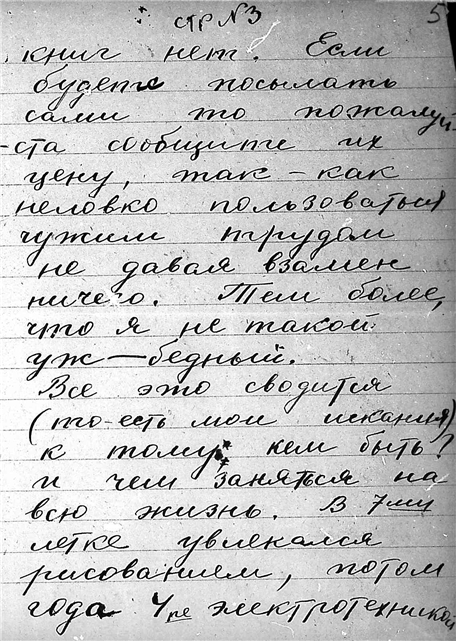 стр №3
5
книг нет. Если
будете посылать
сами то пожалуй-
-ста сообщите их
цену, так-как
неловко пользоваться
чужим трудом
не давая взамен
ничего. Тем более,
что я не такой
уж — бедный.
Все это сводится
(то-есть мои искания)
к тому: кем быть?
и чем заняться на
всю жизнь. В 7ми
летке увлекался
рисованием, потом
года 4ре электротехникой